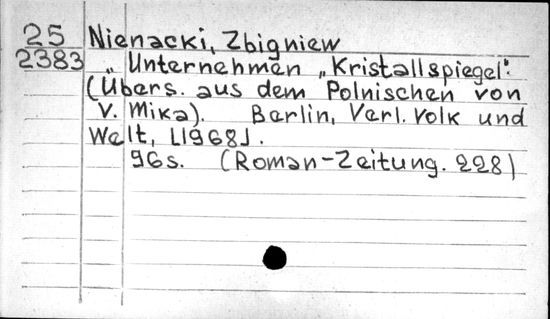 25 Nienacki, Zbigniew
2383 „Unternehmen „Kristallspiegel“.
(Übers. aus dem Polnischen von
V. Mika). Berlin, Verl. Volk und
Welt, [1968].
96s. (Roman-Zeitung. 228)